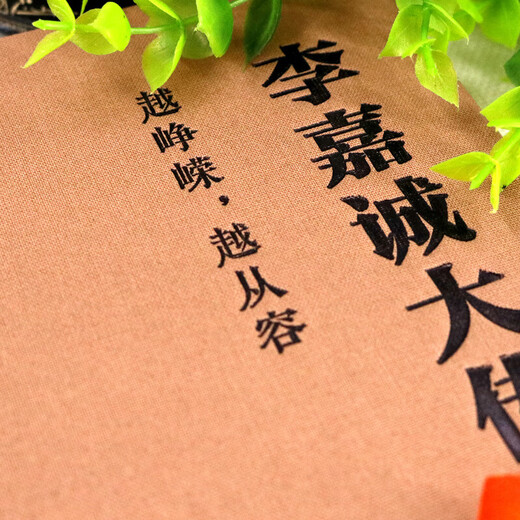 李嘉诚大传
越峥嵘，越从容